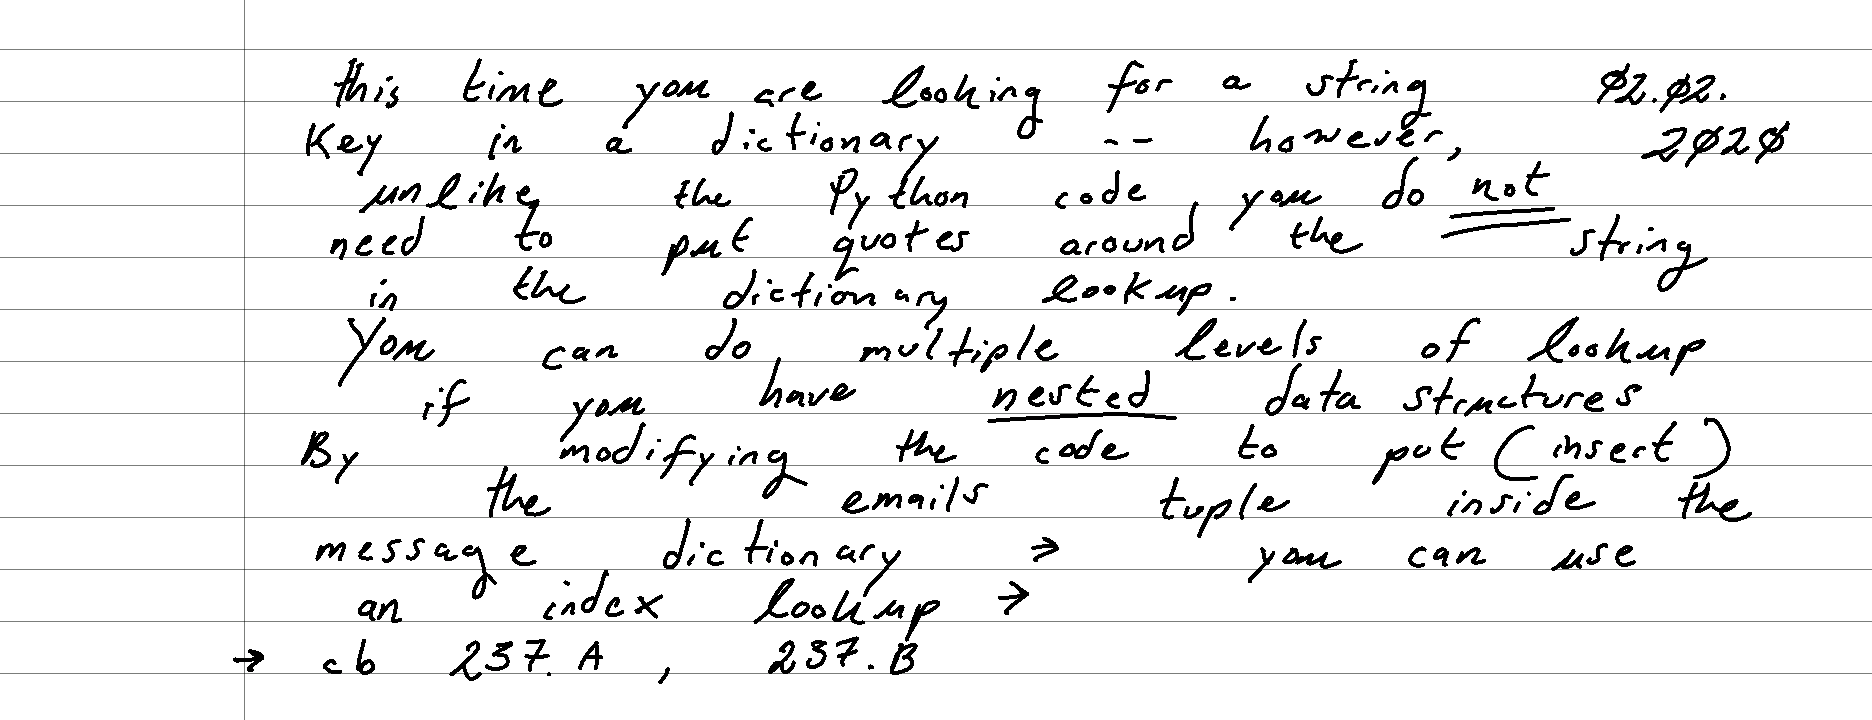 this time you are looking for a string 02.02.
Key in a dictionary -- however, 2020
unlike the Python code, you do not
need to put quotes around the string
in the dictionary lookup.
You can do multiple levels of lookup
if you have nested data structures
By modifying the code to put (insert)
the emails tuple inside the
message dictionary → you can use
an index lookup →
→ cb 237.A, 237.B